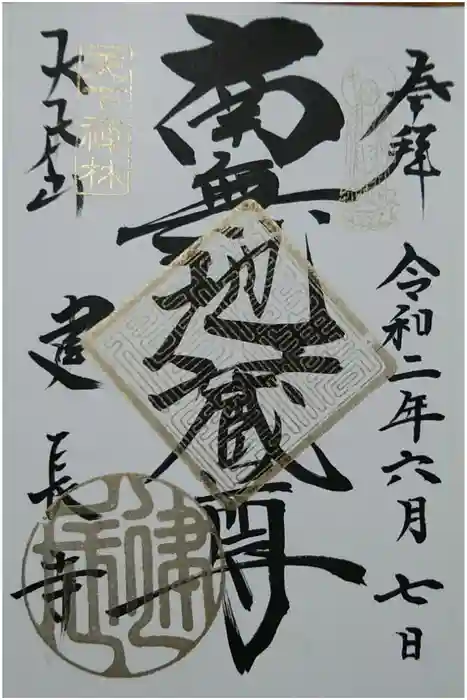 奉拝
令和二年六月七日
南無地蔵尊
天下禅林
建長寺